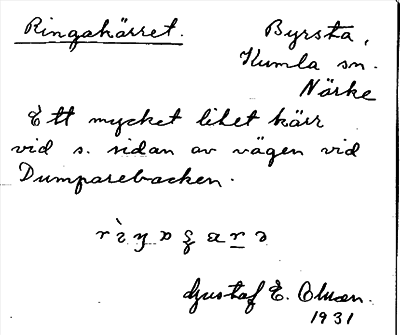 Ringakärret.
Byrsta,
Kumla sn.
Närke
Ett mycket litet kärr
vid s. sidan av vägen vid
Dumparebacken.
Gustaf E. Olsson.
1931